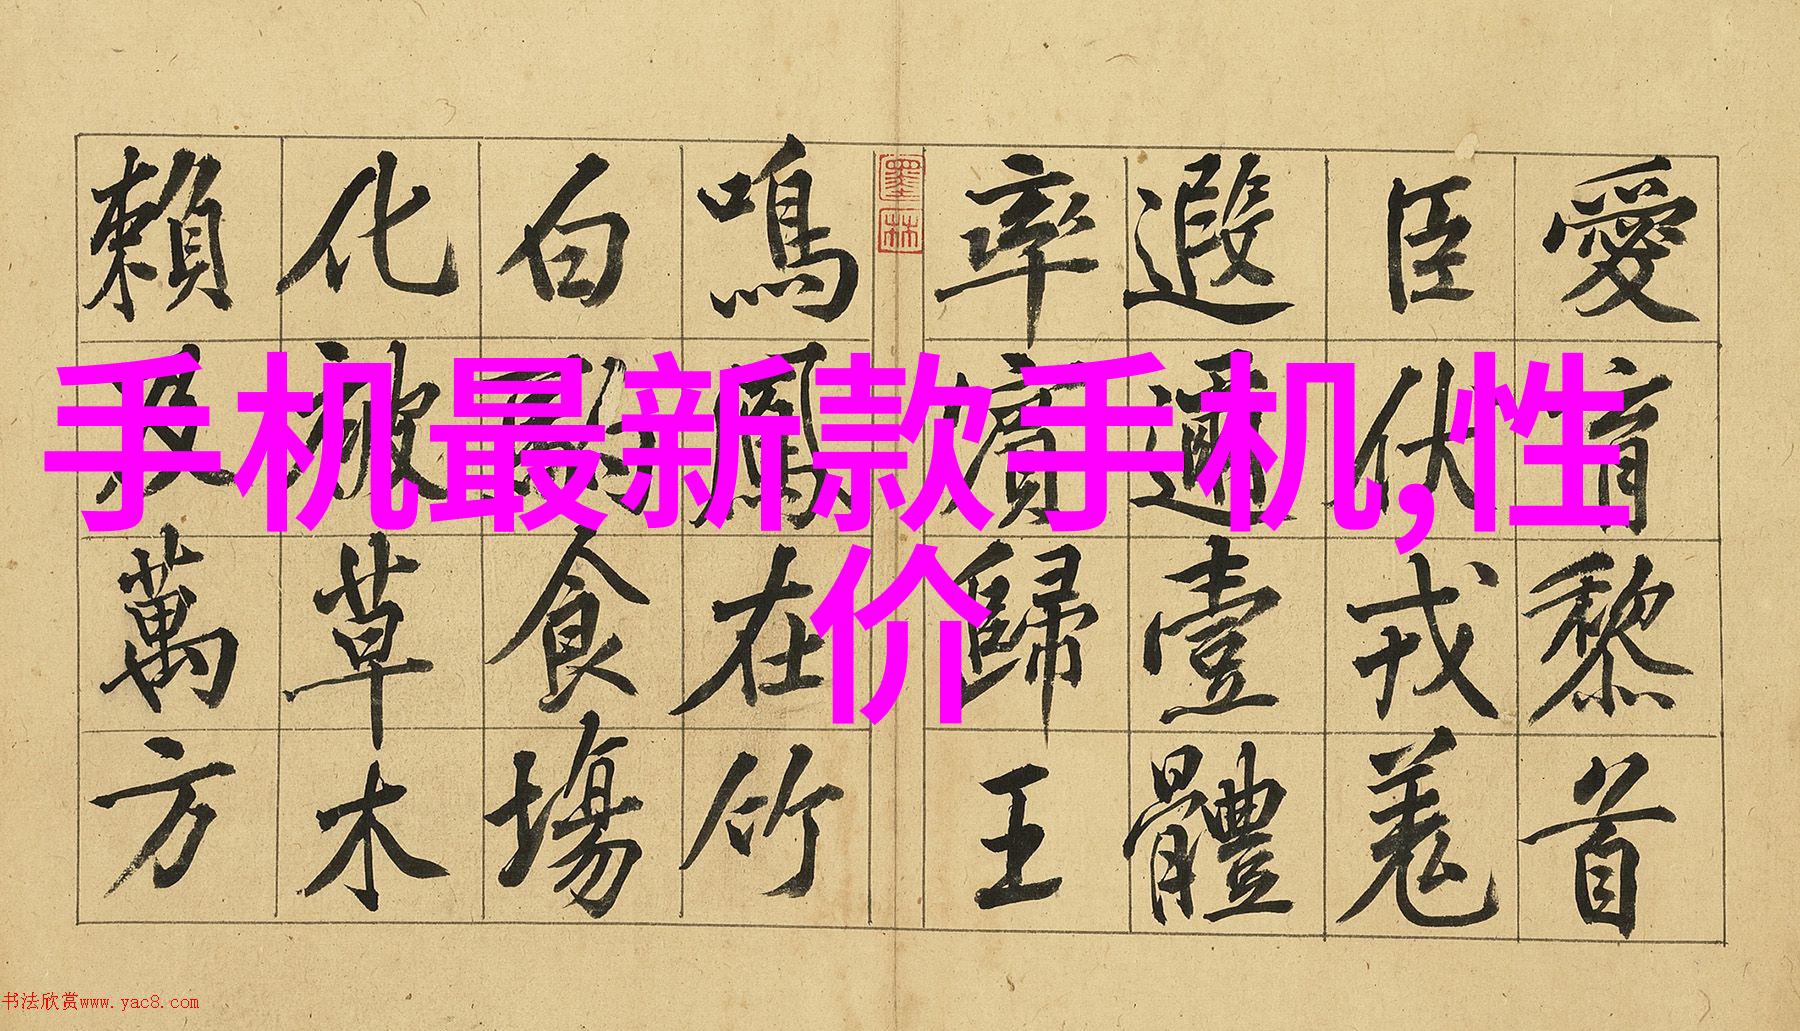 手机最新款手机,性
价
愛育黎首
臣伏戎羌
遐邇壹體
率賓歸王
墨林
鳴鳳在竹
白駒食場
化被草木
賴及萬方
书法欣赏www.yac8.com